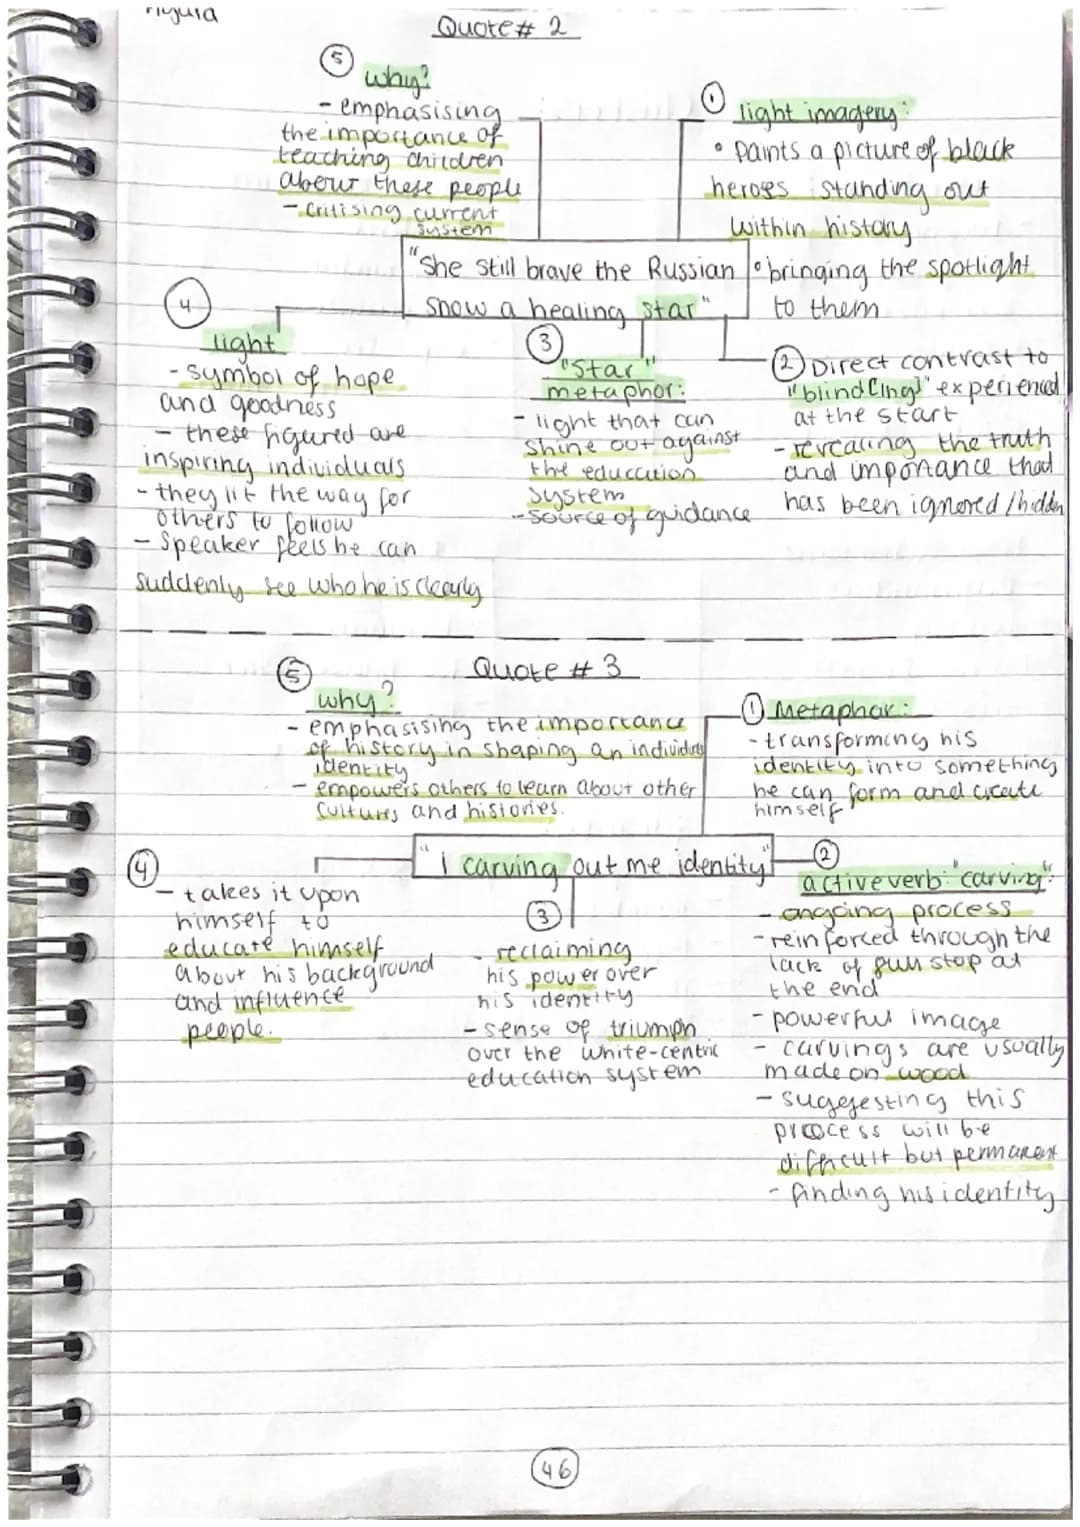 Quote# 2
⑤ why?
- emphasising
the importance of
teaching children
about these people
- critising current
system
① light imagery:
• paints a picture of black
heroes standing out
within history
• bringing the spotlight
to them
"She still brave the Russian
snow a healing star"
④
light
- symbol of hope
and goodness
- these figured are
inspiring individuals
- they lit the way for
others to follow
- Speaker feels he can
suddenly see who he is clearly
③
"Star"
metaphor:
- light that can
shine out against
the education
system
- source of guidance
② Direct contrast to
"blind[ing]" experienced
at the start
- revealing the truth
and importance that
has been ignored / hidden
Quote # 3
⑤ why?
- emphasising the importance
of history in shaping an individuals
identity
- empowers others to learn about other
cultures and histories.
① Metaphor:
- transforming his
identity into something
he can form and create
himself
"i carving out me identity"
④
- takes it upon
himself to
educate himself
about his background
and influence
people.
③
- reclaiming
his power over
his identity
- sense of triumph
over the white-centric
education system
②
active verb: "carving":
- ongoing process
- reinforced through the
lack of full stop at
the end
- powerful image
- carvings are usually
made on wood
- suggesting this
process will be
difficult but permanent
- finding his identity
46